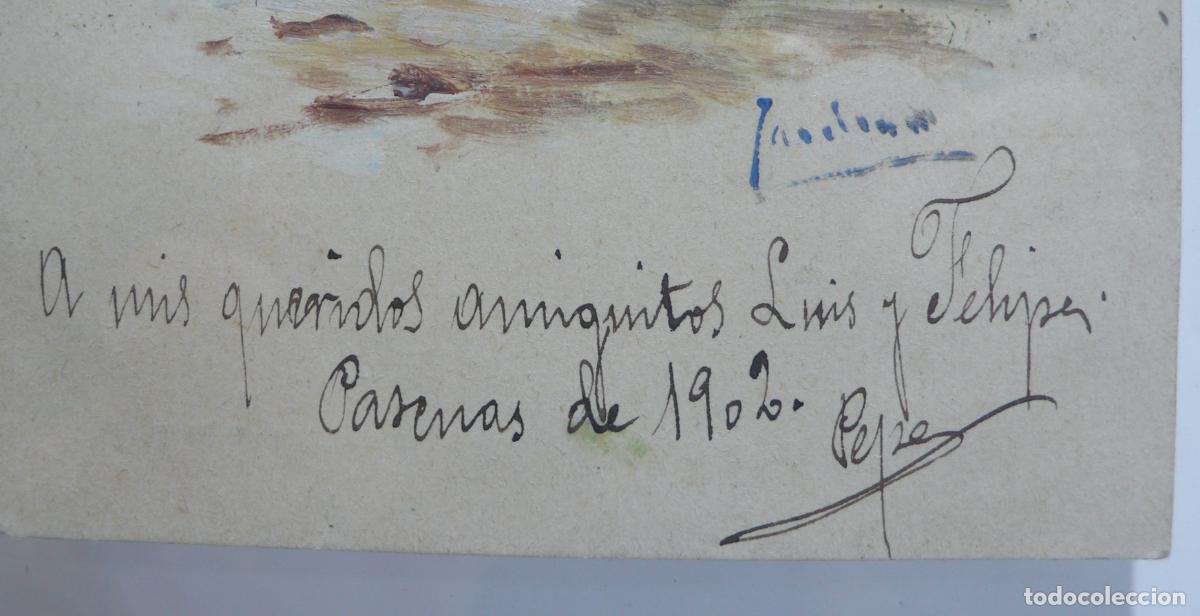 A mis queridos amiguitos Luis y Felipe.
Pascuas de 1902.
Pepe
todocoleccion